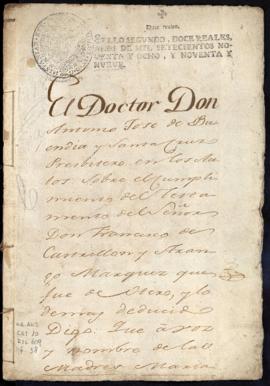 Doze reales.
SELLO SEGUNDO, DOCE REALES,
AÑOS DE MIL SETECIENTOS NO-
VENTA Y OCHO, Y NOVENTA Y
NUEVE.
El Doctor Don
Antonio Jose de Bu
endia y Santa Cruz
Presbitero en los Au
tos sobre el Cumpli
miento del Testa
mento del Señor
Don Francisco de
Castrillon y Aran
go Marquez que
fue de Otero, y lo
demas deducido
Digo. Que a voz
y nombre de las
Madres Maria